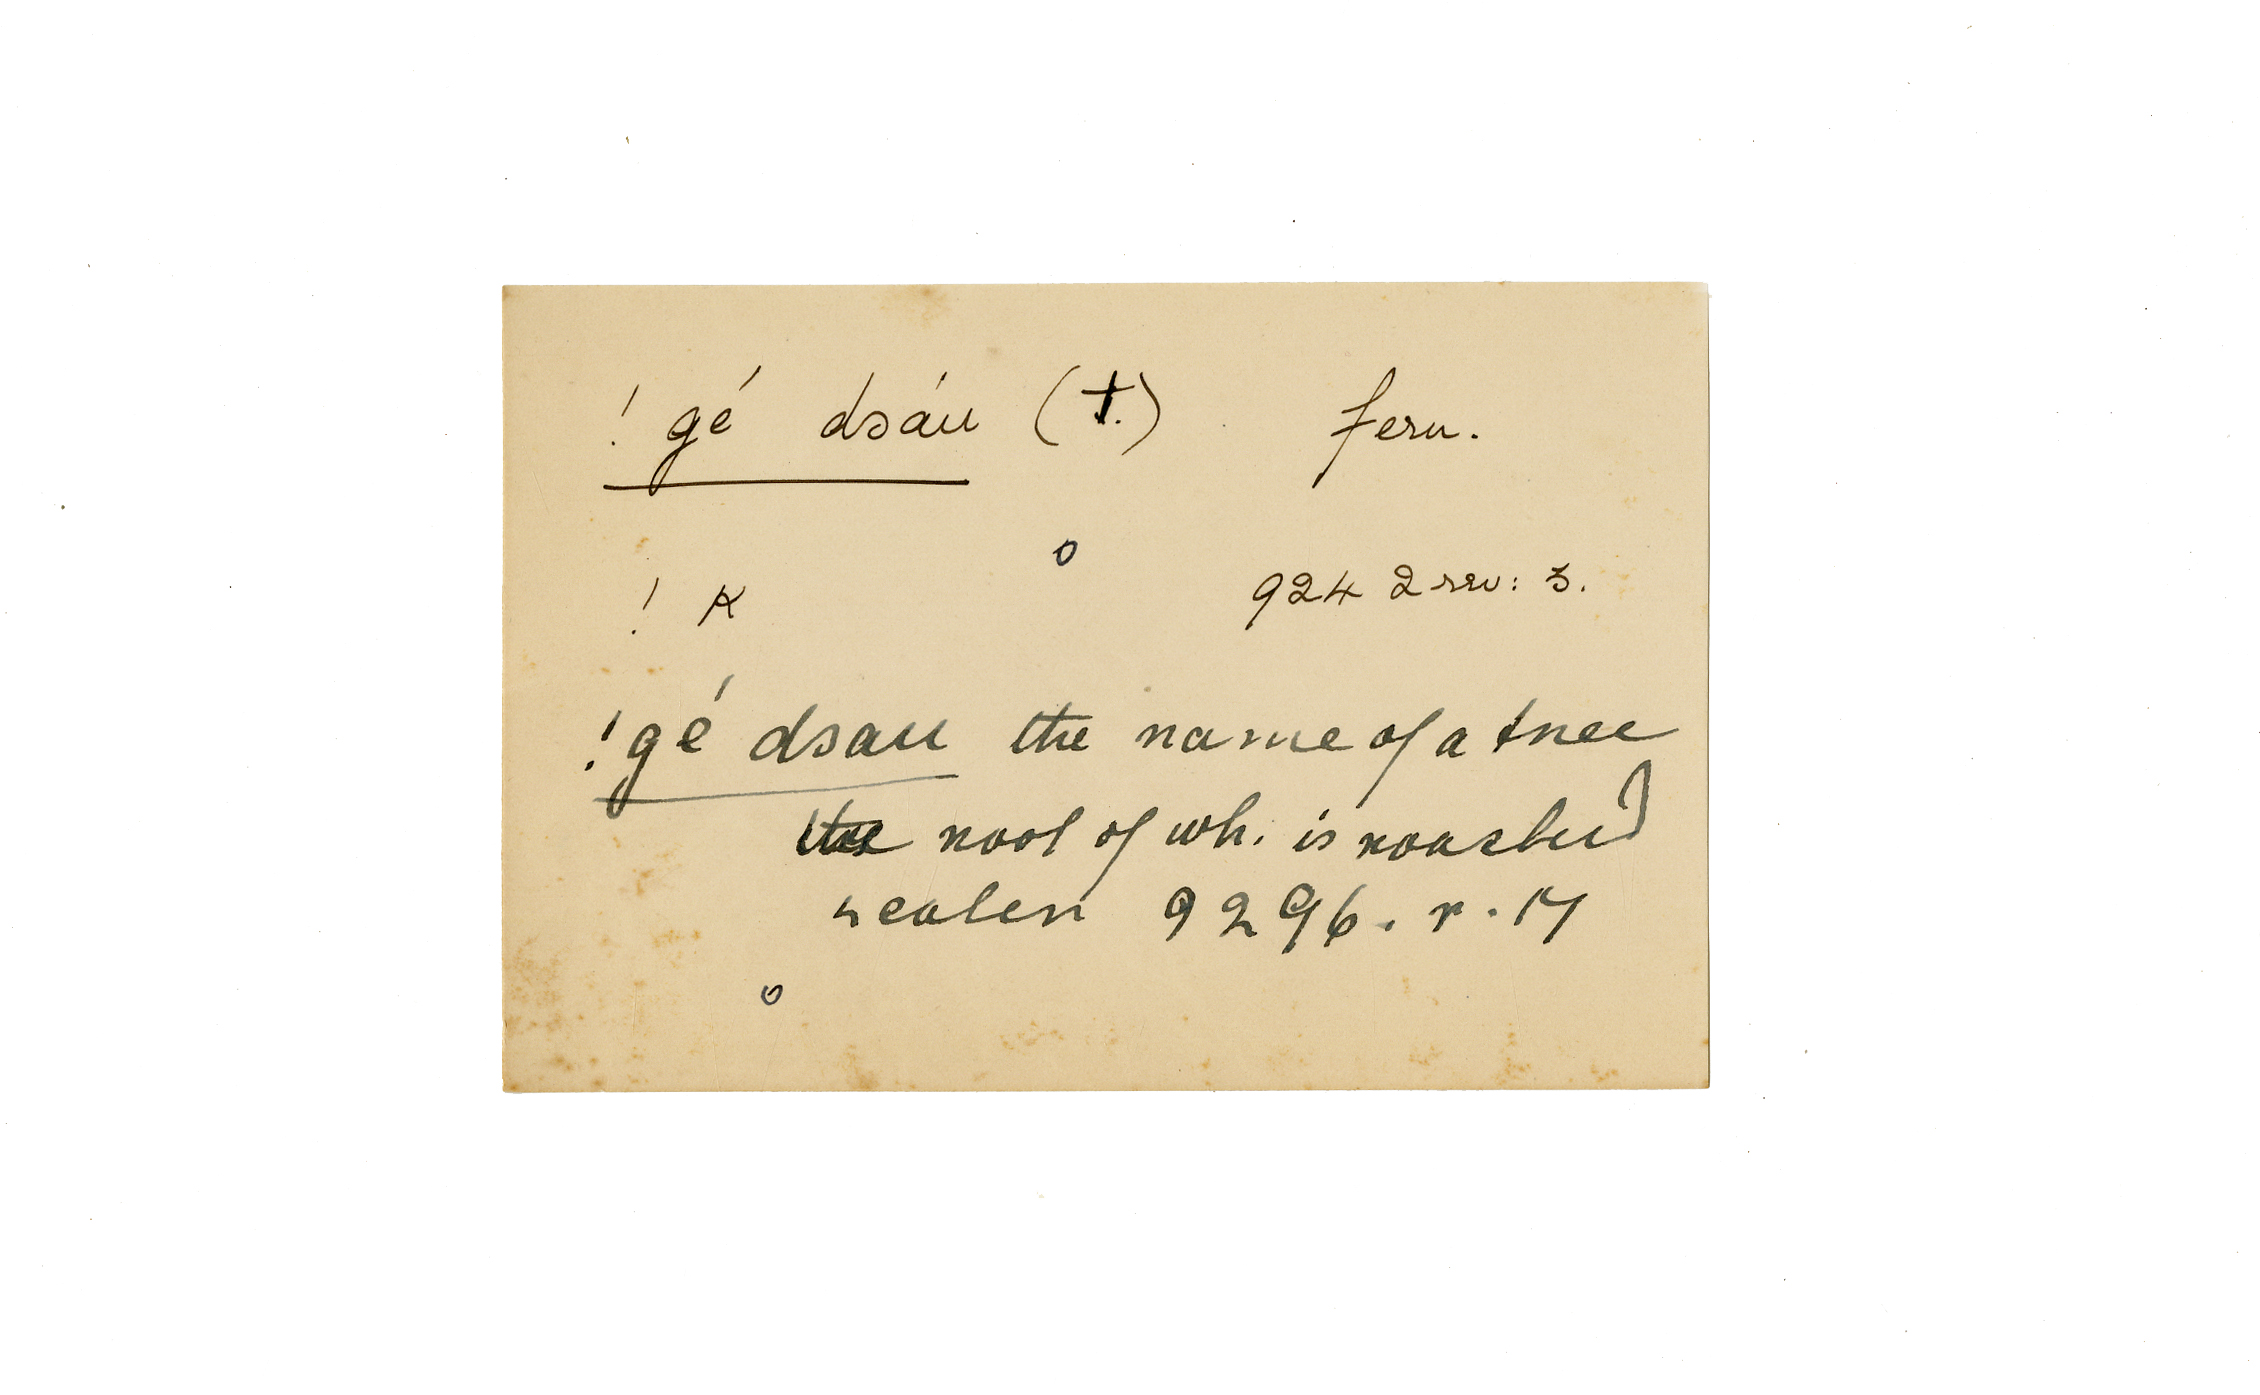 ! gé dsáu (t.) fern.
! K 9242 rev: 3.
!gé dsau the name of a tree
the root of wh. is roasted
& eaten 9296. r. 17